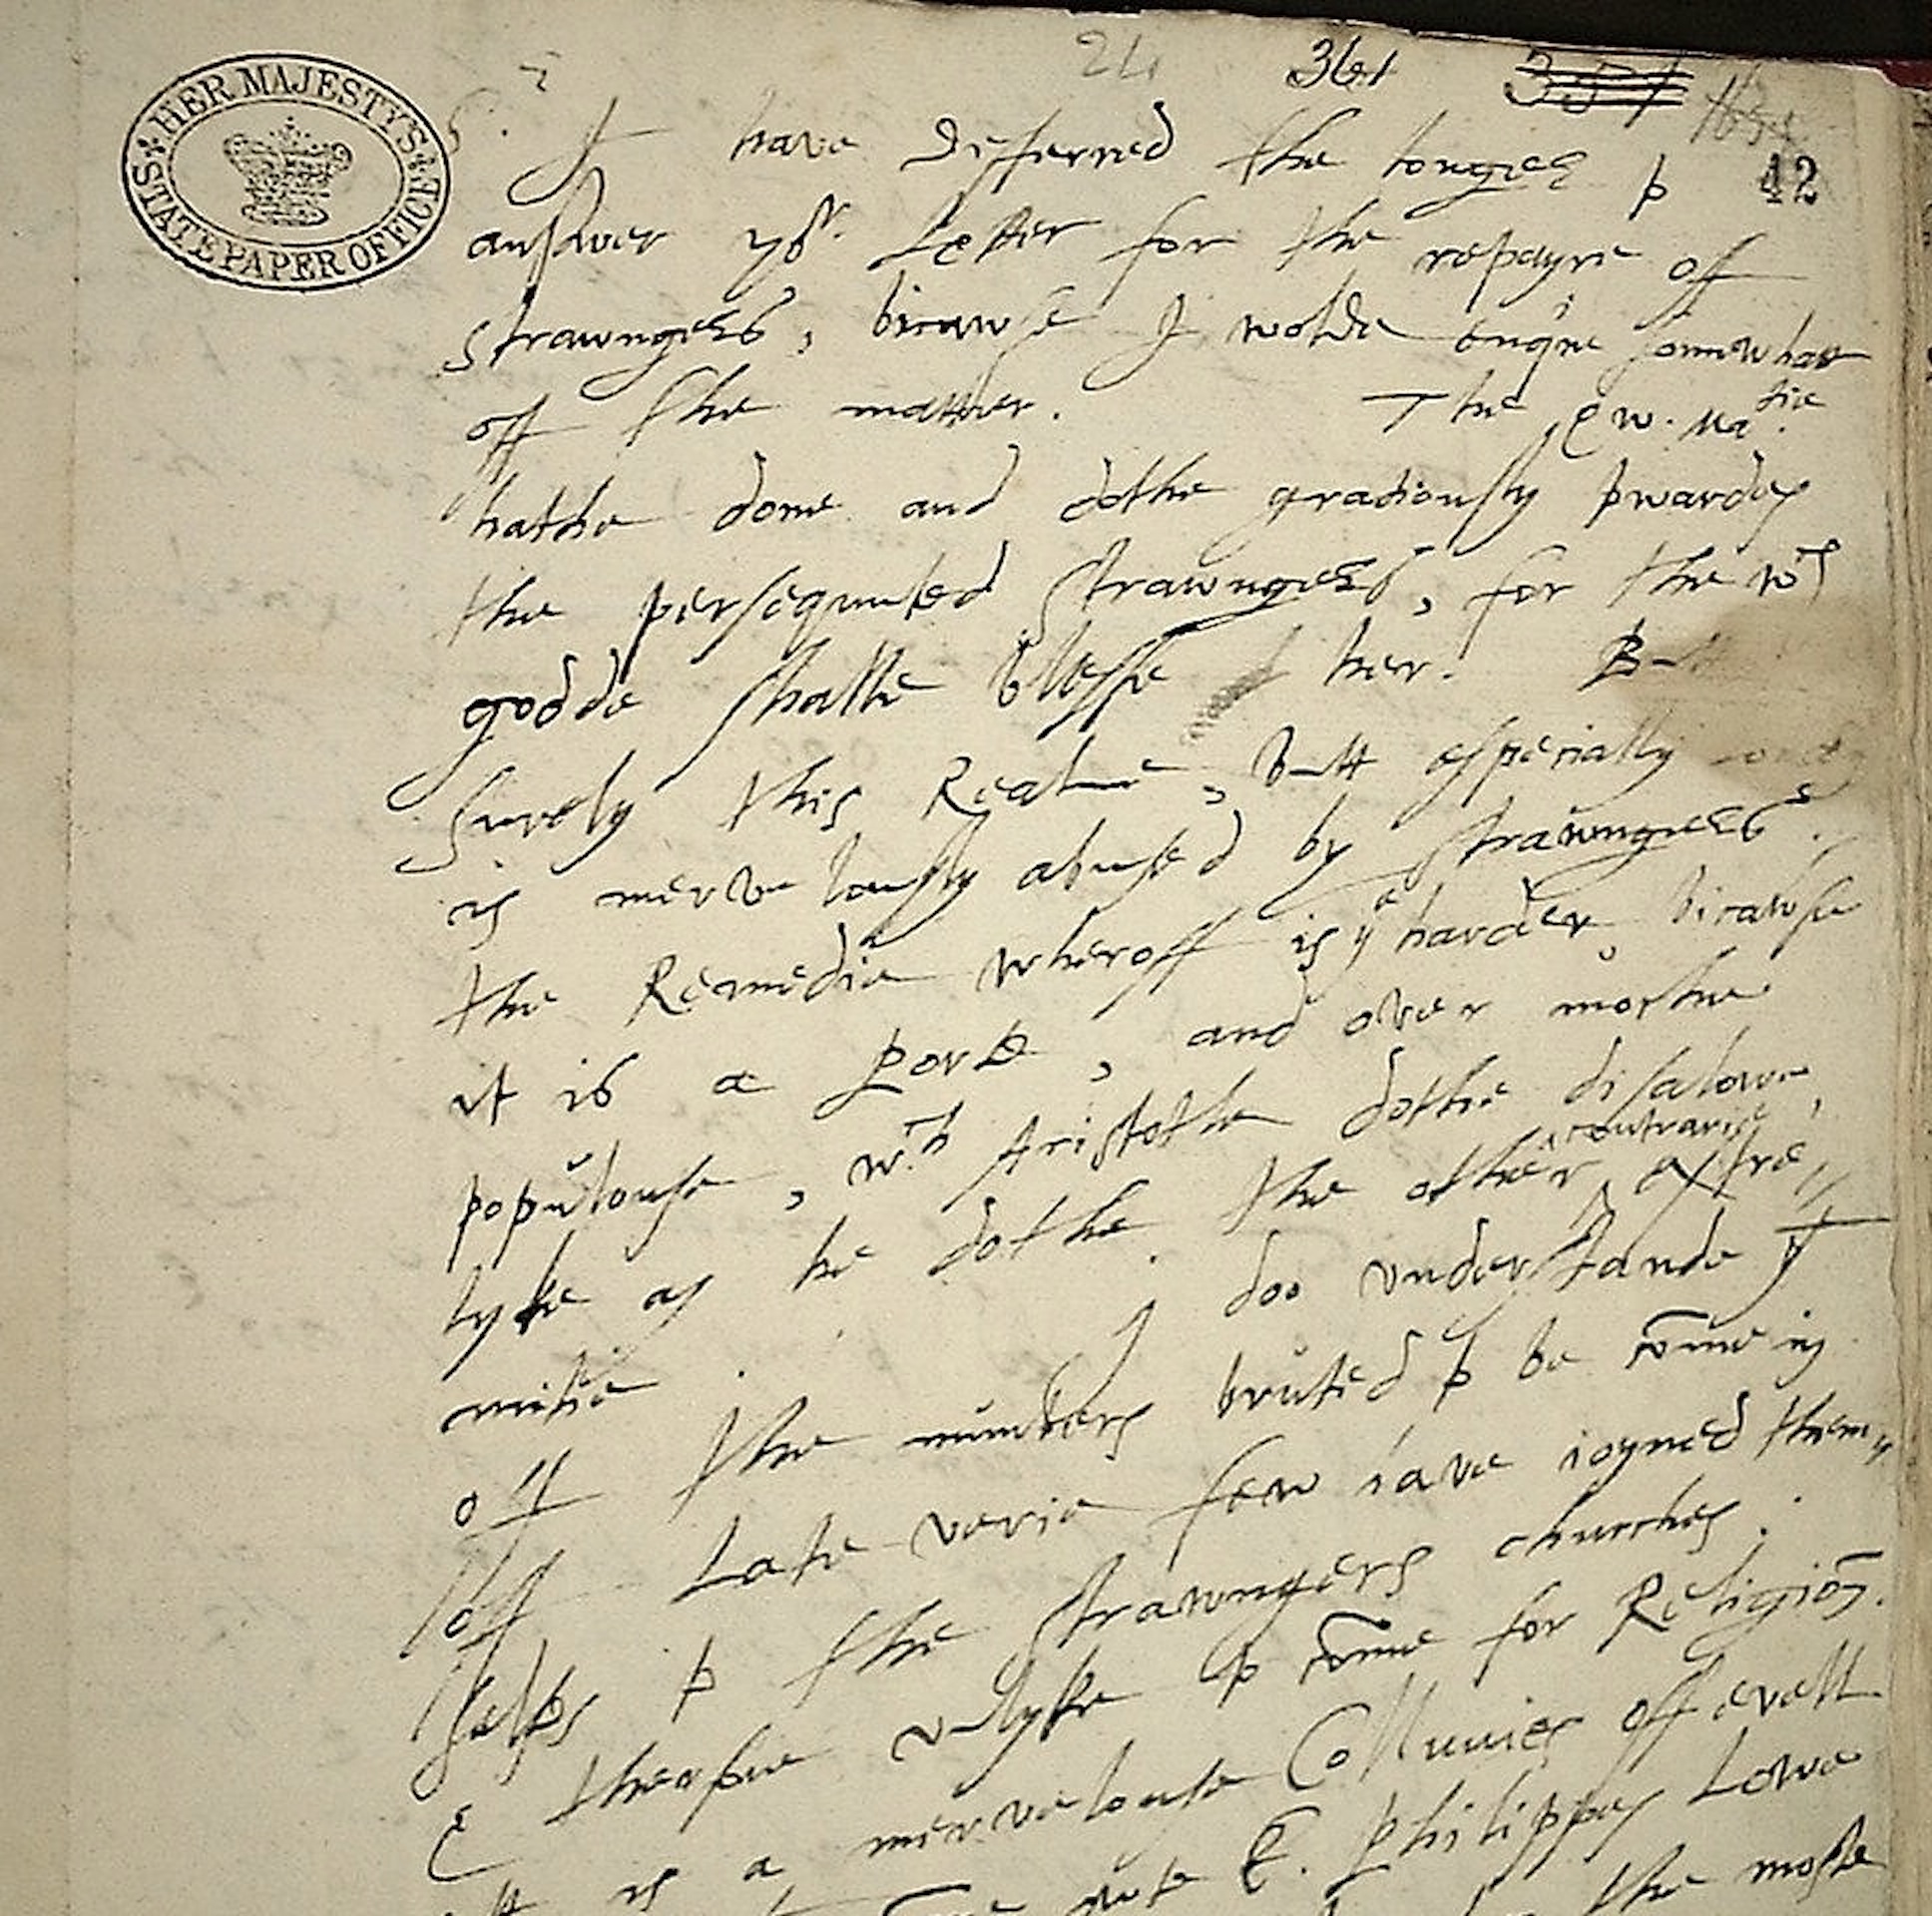 HER MAJESTY'S STATE PAPER OFFICE
24 361 357
42
Sr. I have differred the longer to
answer yor. Letter for the repayre off
strawngers, bicawse I wolde enqire somewhat
off the matter. The Qw. Matie.
hathe done and dothe gratiously towardes
the persequuted strawngers, for the wch
godde shalle blesse her. But
surely this Realme, butt especially
is mervelously abused by strawngers.
the Remedie wheroff is ye harder, bicawse
it is a porte, and over moche
populouse, wch Aristotle dothe disalowe,
lyke as he dothe the other contrarie extre
mitie. I doo understande yt
off the numbers bruted to be come in
off Late verie few have ioyned them
selfs to the strawngers churches.
& therfore unlyke to come for Religion.
It is a mervelouse Colluvies off evell
oute K. Philippes Lowe
the moste